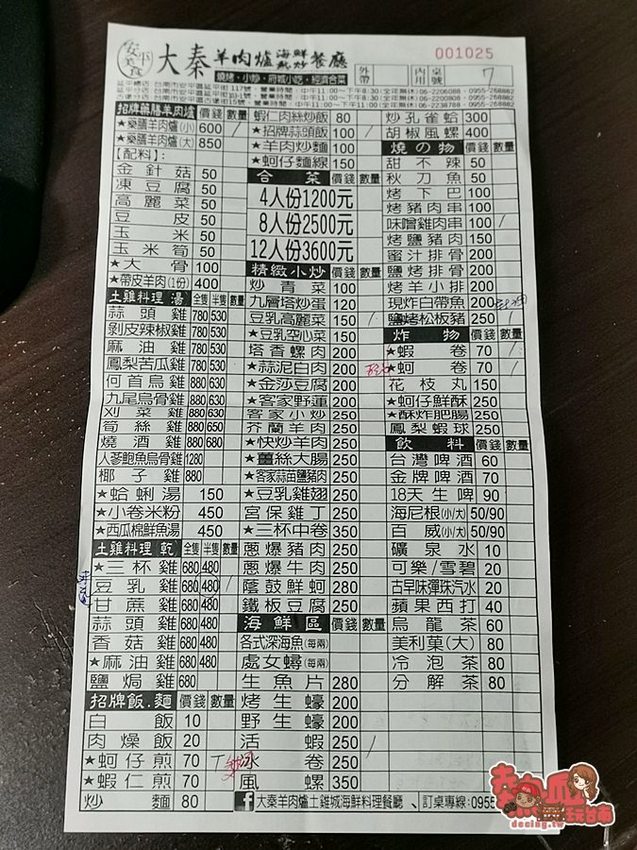 安平美食
大秦 羊肉爐 海鮮熱炒 餐廳
燒烤・小炒・府城小吃・經濟合菜
001025
外帶
內用
桌號 7
招牌藥膳羊肉爐 價錢 數量
★藥膳羊肉爐(小) 600 /
★藥膳羊肉爐(大) 850
【配料】:
金針菇 50
凍豆腐 50
高麗菜 50
豆皮 50
玉米 50
玉米筍 50
★大骨 100
★帶皮羊肉(1份) 400
土雞料理 湯 全隻 半隻 數量
蒜頭雞 780 530
剝皮辣椒雞 780 530
麻油雞 780 530
鳳梨苦瓜雞 780 530
何首烏雞 880 630
九尾烏骨雞 880 630
刈菜雞 880 630
筍絲雞 880 650
燒酒雞 880 680
人蔘鮑魚烏骨雞 1280
椰子雞 880
★蛤蜊湯 150
★小卷米粉 450
★西瓜棉鮮魚湯 450
土雞料理 乾 全隻 半隻 數量
★三杯雞 680 480
豆乳雞 680 480 /
甘蔗雞 680 480
蒜頭雞 680 480
香菇雞 680 480
★麻油雞 680 480
鹽焗雞 680
招牌飯.麵 價錢 數量
白飯 10
肉燥飯 20
★蚵仔煎 70
★蝦仁煎 70
炒麵 80
蝦仁肉絲炒飯 80
★招牌蒜頭飯 100 /
★羊肉炒麵 100
★蚵仔麵線 150
合菜 價錢 數量
4人份1200元
8人份2500元
12人份3600元
精緻小炒 價錢 數量
炒青菜 100
九層塔炒蛋 120
豆乳高麗菜 150 /
★豆乳空心菜 150
塔香螺肉 200
★蒜泥白肉 200
★金莎豆腐 200
★客家野蓮 200
客家小炒 250
芥蘭羊肉 250
★快炒羊肉 250
★薑絲大腸 250
★客家蒜苗鹽豬肉 250
★豆乳雞翅 250
宮保雞丁 250
★三杯中卷 350
蔥爆豬肉 250
蔥爆牛肉 250
蔭鼓鮮蚵 280
鐵板豆腐 250
海鮮區 價錢 數量
各式深海魚(每兩)
處女蟳(每兩)
生魚片 280
烤生蠔 200
野生蠔 200
活蝦 250 /
冰卷 250
風螺 350
炒孔雀蛤 300
胡椒風螺 400
燒の物 價錢 數量
甜不辣 50
秋刀魚 50
烤下巴 100
烤豬肉串 100
味噌雞肉串 100 /
烤鹽豬肉 150
蜜汁排骨 200
鹽烤排骨 200
烤羊小排 200
現炸白帶魚 200
鹽烤松板豬 250 /
炸物 價錢 數量
★蝦卷 70 /
★蚵卷 70 /
花枝丸 150
★蚵仔鮮酥 250
★酥炸肥腸 250
鳳梨蝦球 250
飲料 價錢 數量
台灣啤酒 60
金牌啤酒 70
18天生啤 90
海尼根(小/大) 50/90
百威(小/大) 50/90
礦泉水 10
可樂/雪碧 20
古早味彈珠汽水 20
蘋果西打 40
烏龍茶 60
美利菓(大) 80
冷泡茶 80
分解茶 80
大秦羊肉爐土雞城海鮮料理餐廳、訂桌專線:0955
decing.tw